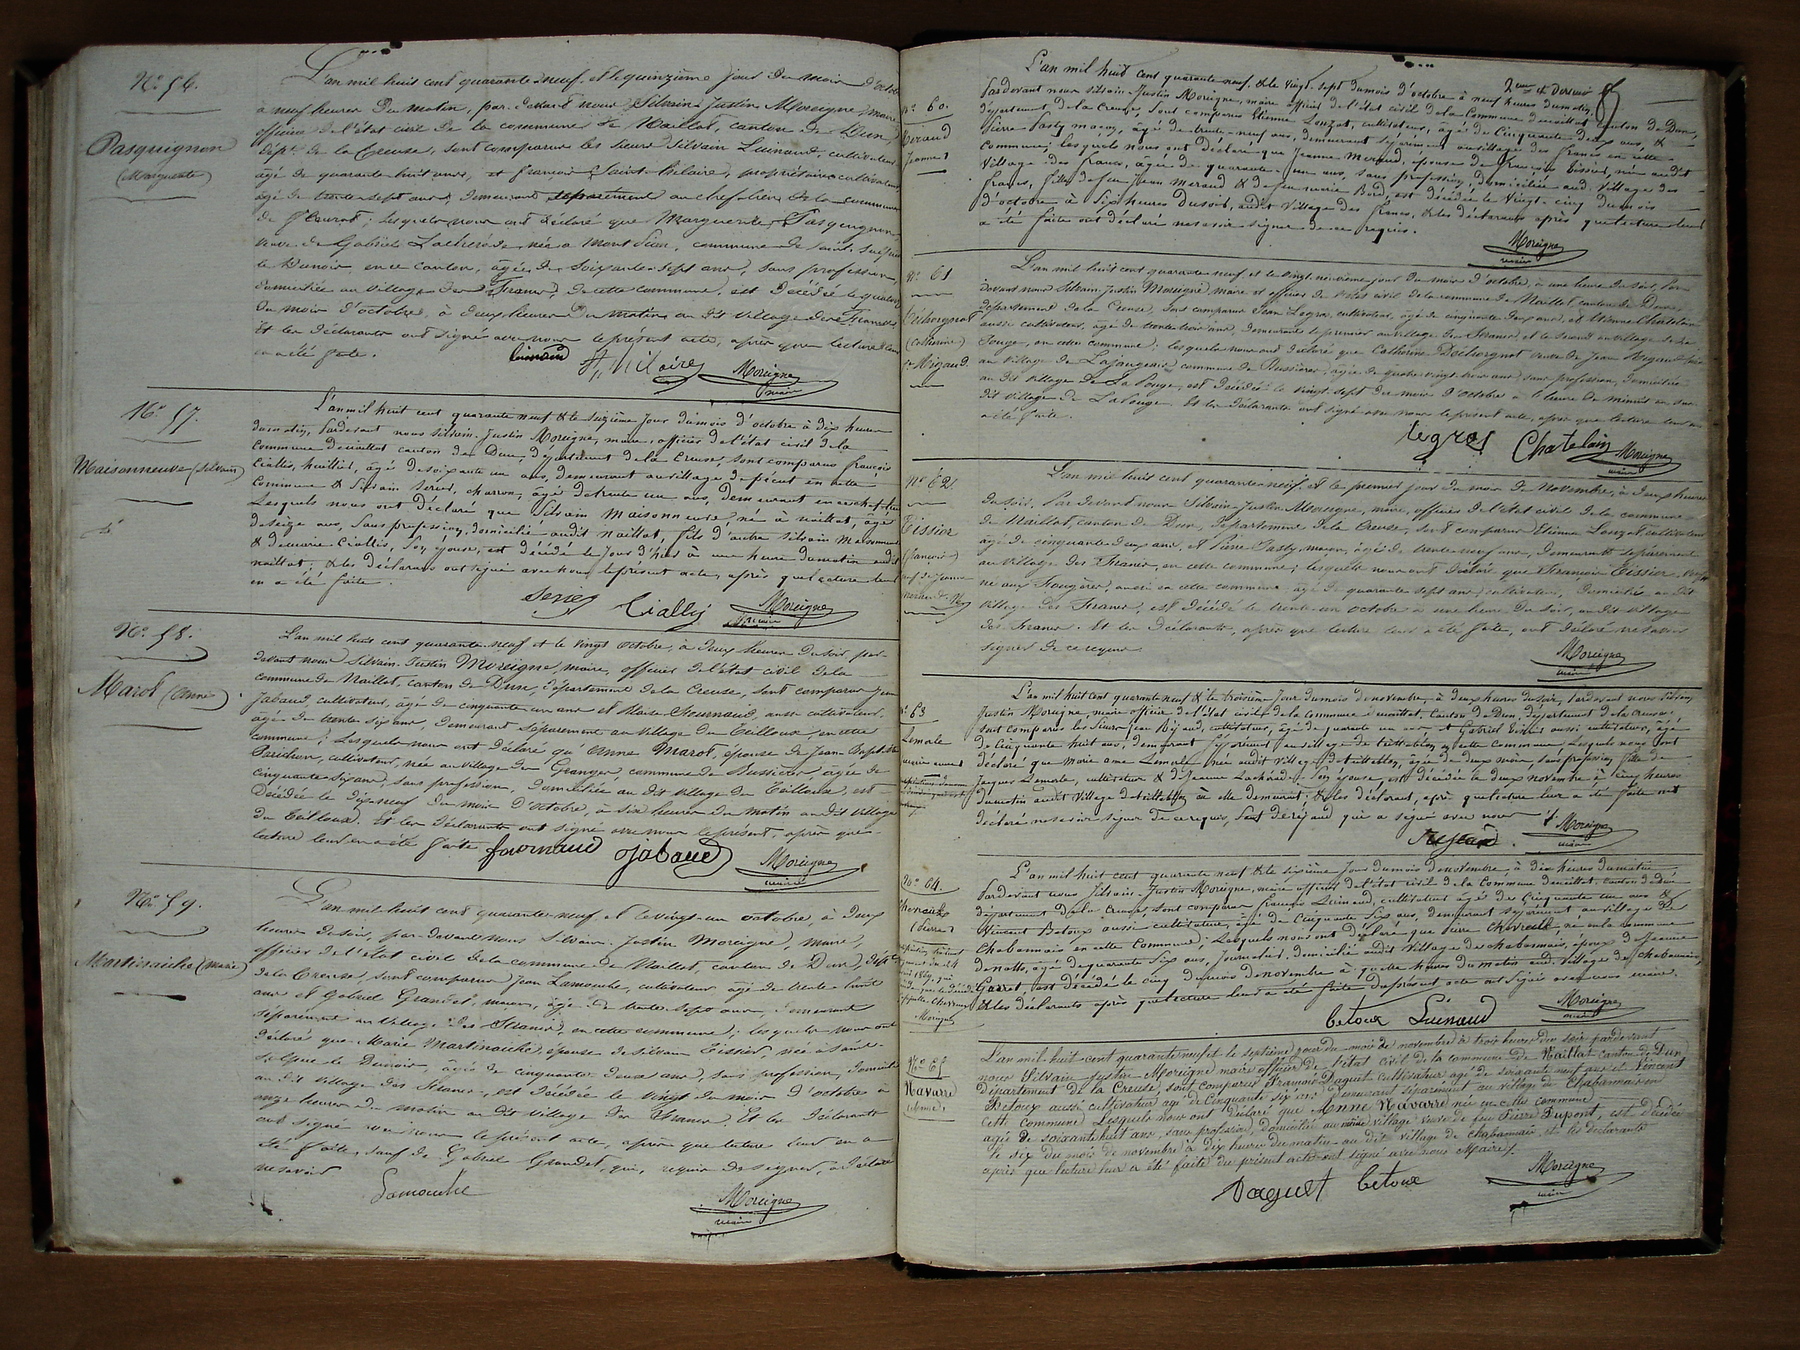 N° 56.
Pasquignon
(Marguerite)
L'an mil huit cent quarante neuf et le quinzième jour du mois d'octobre
à neuf heures du matin, par devant nous Silvain Justin Moreigne, maire
officier de l'état civil de la commune de Naillat, canton de Dun,
dépt de la Creuse, sont comparus les sieurs Silvain Luinaud, cultivateur
âgé de quarante huit ans, et françois Saint-hilaire, propriétaire cultivateur
âgé de trente sept ans, demeurant séparément au chef-lieu de la commune
de ; lesquels nous ont déclaré que Marguerite Pasquignon,
veuve de Gabriel née à commune de Saint Sulpice
le Dunois en ce canton, âgée de soixante sept ans, sans profession
domiciliée au village des Francs, de cette commune, est décédée le quatorze
du mois d'octobre, à deux heures du matin au dit village des Francs
Et les déclarants ont signé avec nous le présent acte, après que lecture leur
en a été faite.
Luinaud St hilaire Moreigne
maire
N° 57.
Maisonneuve (Silvain)
L'an mil huit cent quarante neuf & le seizième jour du mois d'octobre à dix heures
du matin, Pardevant nous Silvain Justin Moreigne, maire, officier de l'état civil de la
Commune de naillat canton de Dun, département de la Creuse, sont comparus françois
Ciallis, huillier, âgé de soixante un ans, demeurant au village de en cette
Commune & Silvain Serres, charron, âgé de trente un ans, demeurant en ce chef-lieu
Lesquels nous ont déclaré que Silvain Maisonneuve, né à naillat, âgé
de seize ans, sans profession, domicilié audit naillat, fils d'autre Silvain Maisonneuve
& de marie Ciallis, son épouse, est décédé le jour d'hier à une heure du matin audit
naillat, & les déclarants ont signé avec nous le présent acte, après que lecture leur
en a été faite.
Serres Ciallis Moreigne
maire
N° 58.
Marot (Anne)
L'an mil huit cent quarante neuf et le vingt octobre, à deux heures du soir, par
devant nous Silvain Justin Moreigne, maire, officier de l'état civil de la
commune de Naillat, canton de Dun, département de la Creuse, sont comparus Jean
Jabaud, cultivateur, âgé de cinquante un ans et Blaise Fournaud, aussi cultivateur,
âgé de trente six ans, demeurant séparément au village du Teilloux, en cette
commune; Lesquels nous ont déclaré qu'Anne Marot, épouse de Jean Baptiste
cultivateur, née au village des Granges, commune de Bussière, âgée de
cinquante six ans, sans profession, domiciliée au dit village de Teilloux, est
décédée le dix-neuf du mois d'octobre, à six heures du matin au dit village
du Teilloux. Et les déclarants ont signé avec nous le présent, après que
lecture leur en a été faite. fournaud Jabaud Moreigne
maire
N° 59.
Martinaiche (Marie)
L'an mil huit cent quarante neuf et le vingt-un octobre à deux
heures du soir, par-devant nous Silvain Justin Moreigne, maire,
officier de l'état civil de la commune de Naillat, canton de Dun, dépt
de la Creuse, sont comparus Jean Lamouche, cultivateur âgé de trente huit
ans et Gabriel Grandet, maçon, âgé de trente sept ans, demeurant
séparément au village des Francs, en cette commune; lesquels nous ont
déclaré que Marie Martinaiche, épouse de silvain Tissier, née à Saint-
Sulpice le Dunois, âgée de cinquante deux ans, sans profession, domiciliée
au dit village des Francs, est décédée le vingt du mois d'octobre à
onze heures du matin au dit village des Francs. Et les déclarants
ont signé avec nous le présent acte, après que lecture leur en a
été faite, sauf de Gabriel Grandet, qui, requis de signer, a déclaré
ne savoir
Lamouche Moreigne
maire
2eme et dernier
N° 60.
Meraud
Jeanne
L'an mil huit cent quarante neuf, & le vingt-sept du mois d'octobre à neuf heures du matin,
Pardevant nous silvain Justin Moreigne, maire officier de l'état civil de la Commune de naillat canton de Dun,
département de la Creuse, sont comparus Etienne Louzat, cultivateur, âgé de Cinquante deux ans, &
Pierre Pasty maçon, âgé de trente-neuf ans, demeurant séparément au village des francs en cette
Commune; lesquels nous ont déclaré que Jeanne Meraud, épouse de françois Tissier, née audit
Village des francs, âgée de quarante un ans, sans profession, domiciliée aud. village des
francs, fille de feu Jean Meraud & de feu marie est décédée le vingt-cinq du mois
d'octobre à six heures du soir, audit village des francs, & les déclarants après que lecture leur
a été faite ont déclaré ne savoir signer de ce requis.
Moreigne
maire
N° 61
Déchorgnat
(Catherine)
Ve Rigaud
L'an mil huit cent quarante neuf et le vingt-neuvième jour du mois d'octobre, à une heure du soir, Par-
devant nous Silvain Justin Moreigne, maire et officier de l'état civil de la commune de Naillat, canton de Dun,
département de la Creuse, sont comparus Jean Legros, cultivateur, âgé de cinquante deux ans, et Etienne Chatelain
aussi cultivateur, âgé de trente trois ans, demeurant le premier au village des Francs et le second au village de La
Pouge, en cette commune; lesquels nous ont déclaré que Catherine Déchorgnat veuve de Jean Rigaud
au village de commune de Bussière, âgée de quatre vingt trois ans, sans profession, domiciliée
au dit village de La Pouge, est décédée le vingt sept du mois d'octobre à l'heure de minuit en son
dit village de La Pouge. Et les déclarants ont signé avec nous le présent acte, après que lecture leur en
a été faite.
Legros Chatelain Moreigne
maire
N° 62
Tissier
(françois)
L'an mil huit cent quarante-neuf. et le premier jour du mois de Novembre, à deux heures
du soir, Par devant nous Silvain Justin Moreigne, maire, officier de l'état civil de la commune
de Naillat, canton de Dun, département de la Creuse, sont comparus Etienne Louzat, cultivateur
âgé de cinquante deux ans, et Pierre Pasty, maçon, âgé de trente neuf ans, demeurant séparément
au village des Francs, en cette commune; lesquels nous ont déclaré que François Tissier,
né aux Fougères, aussi en cette commune âgé de quarante sept ans, cultivateur, domicilié au dit
village des Francs, est décédé le trente un octobre à une heure du soir, au dit village
des Francs. Et les déclarants, après que lecture leur a été faite, ont déclaré ne savoir
signer de ce requis.
Moreigne
maire
N° 63
Lemoile
marie anne
L'an mil huit cent quarante neuf & le troisième Jour du mois de novembre, à deux heures du soir, Pardevant nous silvain
Justin Moreigne, maire officier de l'état civil de la commune de naillat, canton de Dun, département de la creuse
sont comparus les sieurs Jean Rigaud, cultivateur, âgé de quarante un ans & Gabriel aussi cultivateur, âgé
de Cinquante huit ans, demeurant séparément au village de en cette commune, lesquels nous ont
déclaré que Marie anne Lemoile née audit village de âgée de deux mois, sans profession, fille de
Jacques Lemoile, cultivateur & de Jeanne son épouse, est décédée le deux novembre à heures
du matin audit village de où elle demeurait; & les déclarants, après que lecture leur a été faite ont
déclaré ne savoir signer de ce requis, sauf de rigaud qui a signé avec nous.
Moreigne
maire
N° 64.
Chevreux
(Pierre)
Moreigne
L'an mil huit cent quarante neuf & le sixième Jour du mois de novembre, à dix heures du matin
Pardevant nous Silvain Justin Moreigne, maire officier de l'état civil de la Commune de naillat, canton de Dun
département de la creuse, sont comparus françois Luinaud, cultivateur âgé de Cinquante un ans &
Vincent Betoux aussi cultivateur, âgé de Cinquante six ans, demeurant séparément, au village de
Chabannais en cette Commune; Lesquels nous ont déclaré que Pierre Chevreux, né en la commune
de noth, âgé de quarante six ans, Journalier, domicilié audit village de chabannais, époux de Jeanne
est décédé le cinq du mois de novembre à quatre heures du matin aud. village de Chabannais,
& les déclarants après que lecture leur a été faite du présent acte ont signé avec nous maire.
betoux Luinaud Moreigne
maire
N° 65
Navarre
(Anne)
L'an mil huit cent quarante neuf et le septième jour du mois de novembre à trois heures du soir pardevant
nous Silvain Justin Moreigne maire officier de l'état civil de la commune de Naillat canton de Dun
département de la Creuse, sont comparus Framond Daguet cultivateur agé de soixante neuf ans et Vincent
Betoux aussi cultivateur agé de Cinquante six ans demeurant séparément au village de Chabannais en
cette commune Lesquels nous ont déclaré que Anne Navarre née en cette commune
agée de soixante huit ans, sans profession, domiciliée au même village veuve de feu Pierre Dupont, est décédée
le six du mois de novembre à dix heures du matin au dit village de chabannais, et les déclarants
après que lecture leur a été faite du présent acte ont signé avec nous Maire.
Daguet betoux Moreigne
maire